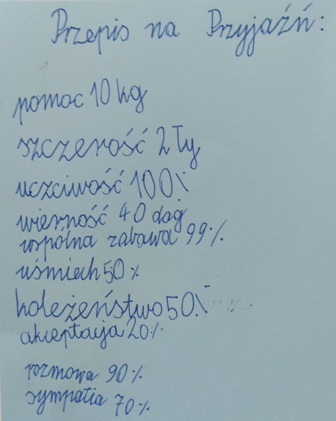 Przepis na Przyjaźń:
pomoc 10 kg
szczerość 2 ły
uczciwość 100%
wierność 40 dag
wspólna zabawa 99%
uśmiech 50%
koleżeństwo 50%
akceptacja 20%
rozmowa 90%
sympatia 70%